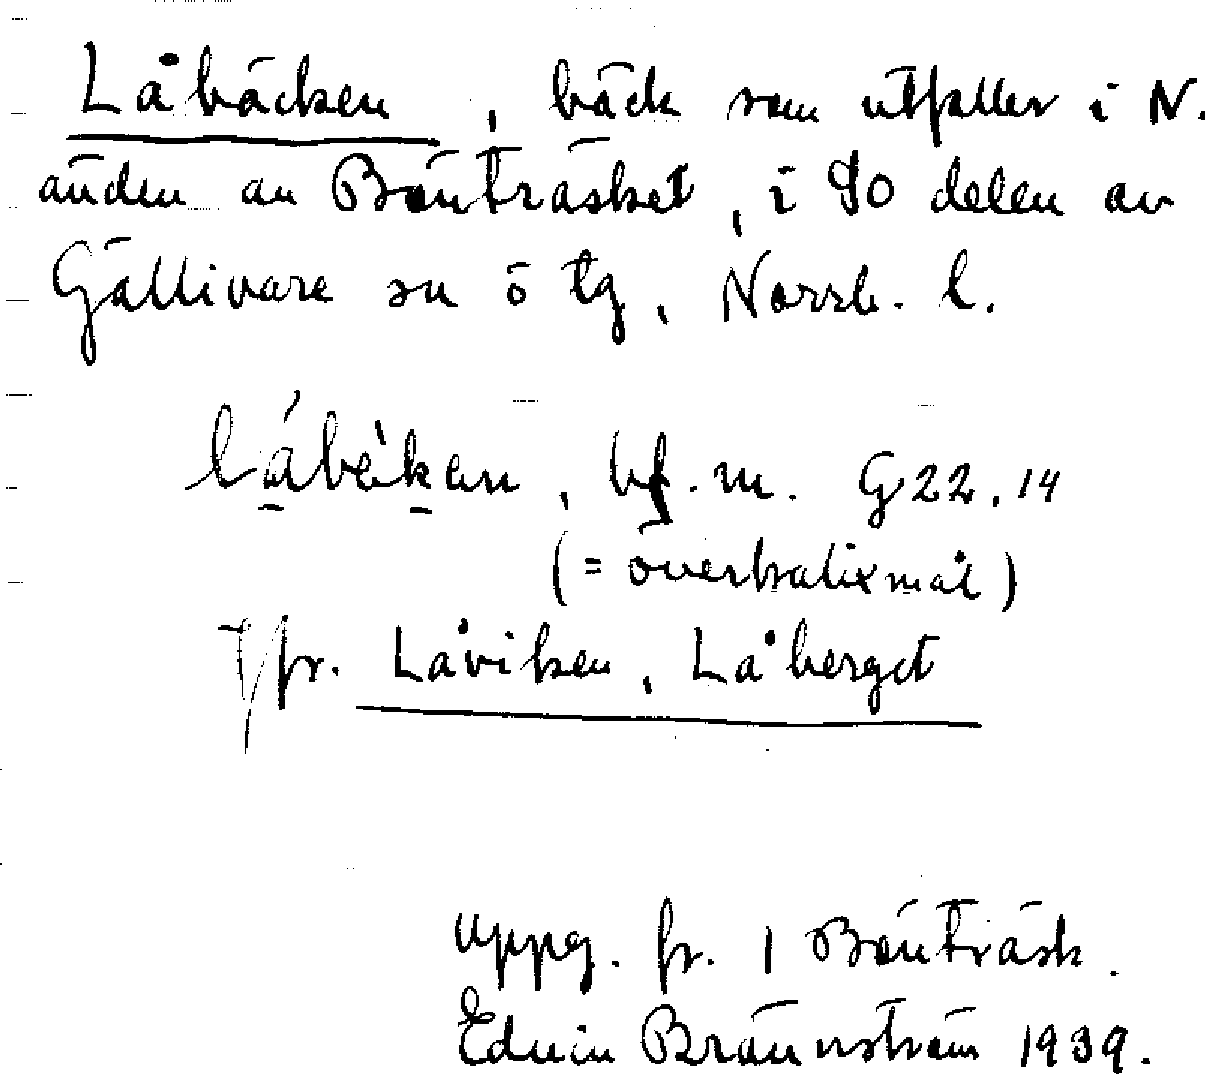 Låbäcken, bäck som utfaller i N.
änden av Bönträsket, i SO delen av
Gällivare sn o tg, Norrb. l.
låbèkan, bf. m. G22.14
(= överkalixmål)
Jfr. Låviken, Låberget
uppg. fr. 1 Bönträsk.
Edvin Brännström 1939.